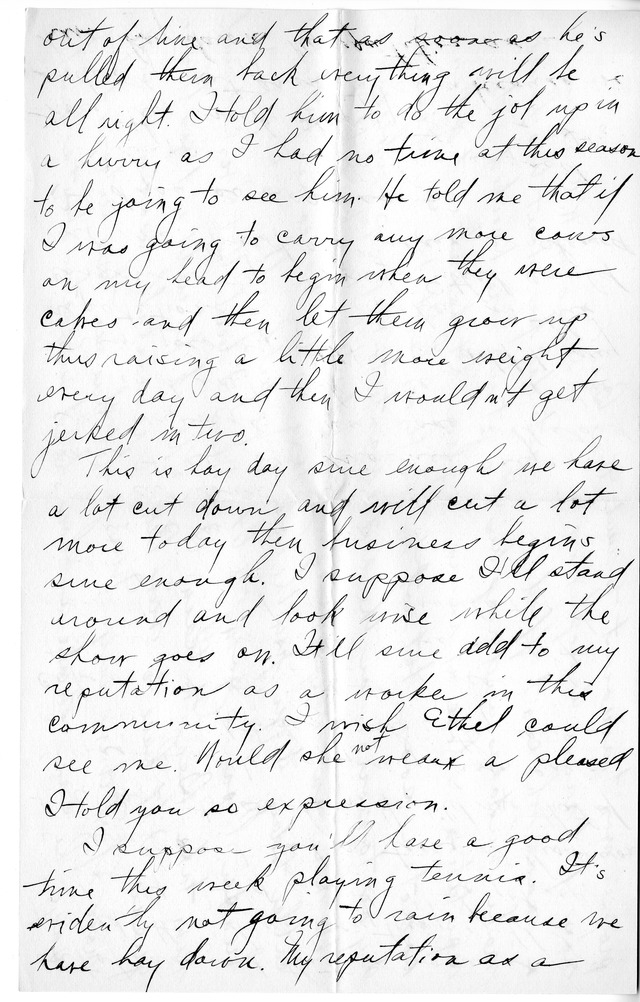 out of line and that as soon as he's
pulled them back everything will be
all right. I told him to do the job up in
a hurry as I had no time at this season
to be going to see him. He told me that if
I was going to carry any more cows
on my head to begin when they were
calves and then let them grow up
thus raising a little more weight
every day and then I wouldn't get
jerked in two.
This is hay day sure enough we have
a lot cut down and will cut a lot
more today then business begins
sure enough. I suppose I'll stand
around and look wise while the
show goes on. It'll sure add to my
reputation as a worker in this
community. I wish Ethel could
see me. Would she not wear a pleased
I told you so expression.
I suppose you'll have a good
time this week playing tennis. It's
evidently not going to rain because we
have hay down. My reputation as a